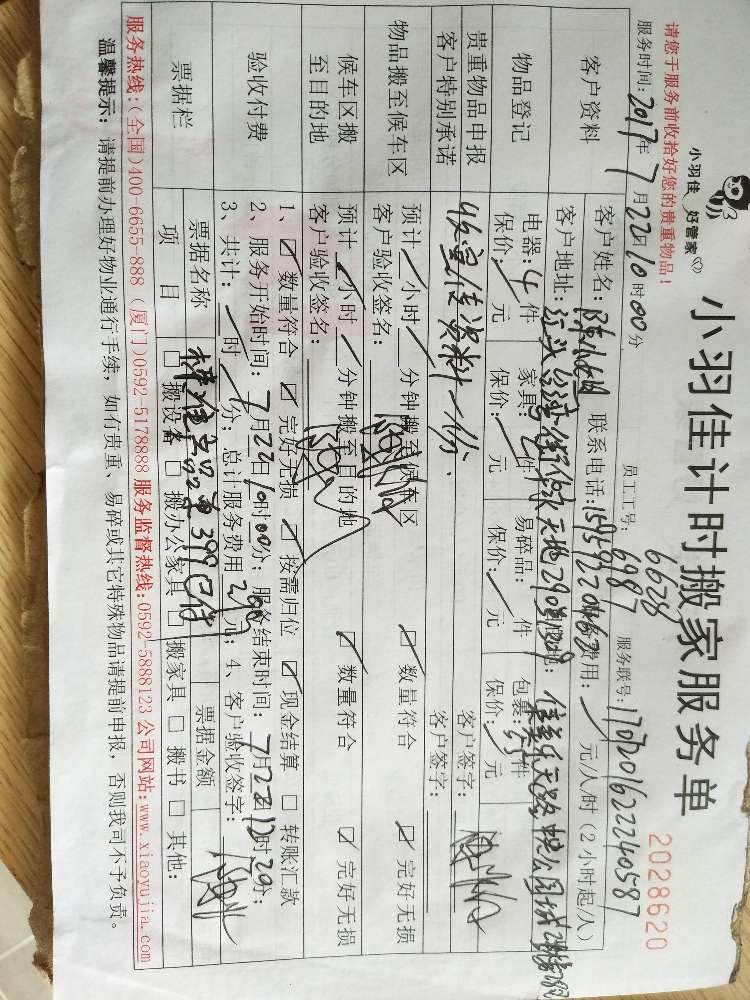 小羽佳 好管家
小羽佳计时搬家服务单
2028620
请您于服务前收拾好您的贵重物品！
员工工号：6628
6987
服务联号：170201622240587
服务时间：2017年7月22日10时00分
客户资料
客户姓名：陈小姐 联系电话：15959220463 服务费用：/元/人/时（2小时起/人）
客户地址：
物品登记
电器：4件 家具：/件 易碎品：/件 包裹：5件
保价：/元 保价：/元 保价：/元 保价：/元
贵重物品申报
客户特别承诺
收宣传资料一份.
客户签字：
客户签字：
物品搬至候车区
预计/小时/分钟搬至候车区 ☑数量符合 ☑完好无损
客户验收签名：
候车区搬至目的地
预计/小时/分钟搬至目的地 ☑数量符合 ☑完好无损
客户验收签名：
验收付费
1、☑数量符合 ☑完好无损 ☑按需归位 ☑现金结算 □转账汇款
2、服务开始时间：7月22日10时00分；服务结束时间：7月22日12时20分；
3、共计：/时/分；总计服务费用290元；4、客户验收签字：
票据栏
票据名称 票据金额
项目 □搬设备 □搬办公家具 □搬家具 □搬书 □其他：
服务热线：(全国)400-6655-888 (厦门)0592-5178888 服务监督热线：0592-5888123 公司网站：www.xiaoyujia.com
温馨提示：请提前办理好物业通行手续，如有贵重、易碎或其它特殊物品请提前申报，否则我司不予负责。